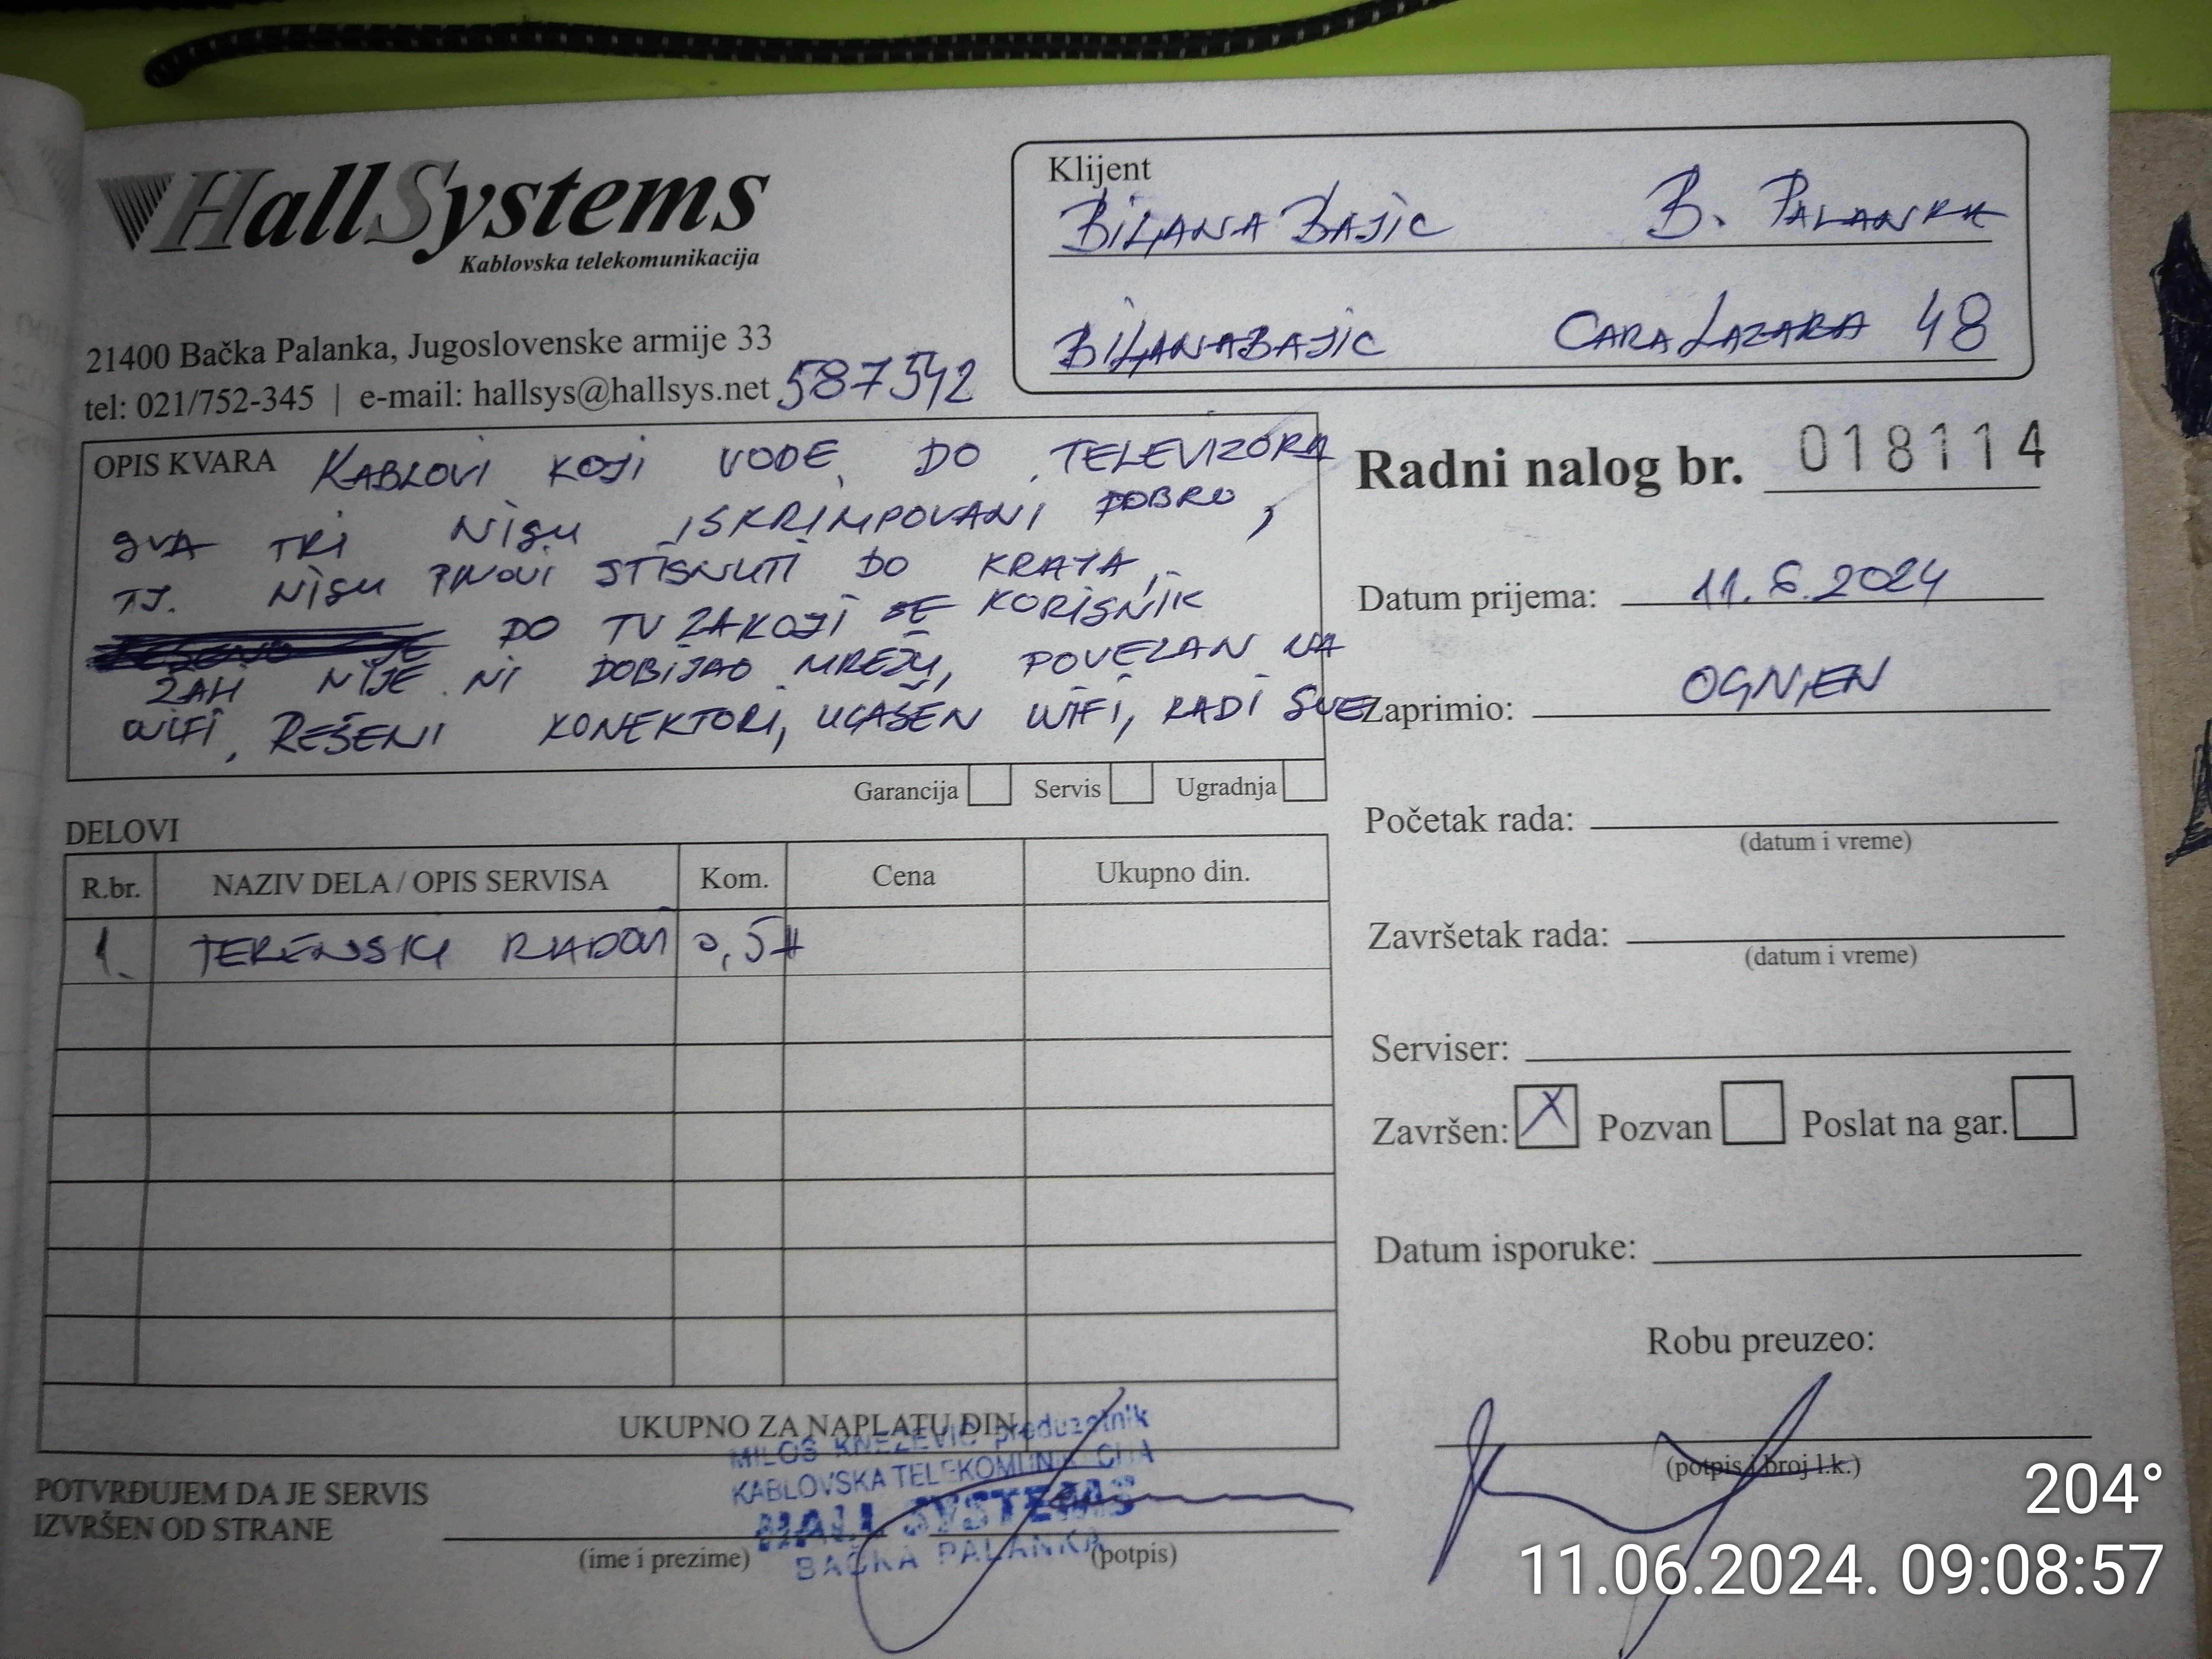 HallSystems
Kablovska telekomunikacija
21400 Bačka Palanka, Jugoslovenske armije 33
tel: 021/752-345 | e-mail: hallsys@hallsys.net 587542
Klijent
BILJANA BAJIC B. PALANKA
BILJANABAJIC CARA LAZARA 48
OPIS KVARA KABLOVI KOJI VODE DO TELEVIZORA
DVA TRI NISU ISKRIMPOVANI DOBRO,
TJ. NISU PINOVI STISNUTI DO KRAJA,
DO TV ZA KOJI SE KORISNIK
ŽALI NIJE NI DOBIJAO MREŽU, POVEZAN NA
WIFI, REŠENI KONEKTORI, UGAŠEN WIFI, RADI SVE
Garancija Servis Ugradnja
Radni nalog br. 018114
Datum prijema: 11.6.2024
Zaprimio: OGNJEN
Početak rada:
(datum i vreme)
Završetak rada:
(datum i vreme)
Serviser:
Završen: X Pozvan Poslat na gar.
Datum isporuke:
Robu preuzeo:
(potpis i broj l.k.)
DELOVI
R.br. NAZIV DELA / OPIS SERVISA Kom. Cena Ukupno din.
1. TERENSKI RADOVI 0,5H
UKUPNO ZA NAPLATU DIN
MILOŠ KNEŽEVIĆ preduzetnik
KABLOVSKA TELEKOMUNIKACIJA
HALL SYSTEMS
BAČKA PALANKA
POTVRĐUJEM DA JE SERVIS
IZVRŠEN OD STRANE
(ime i prezime) (potpis)
204°
11.06.2024. 09:08:57